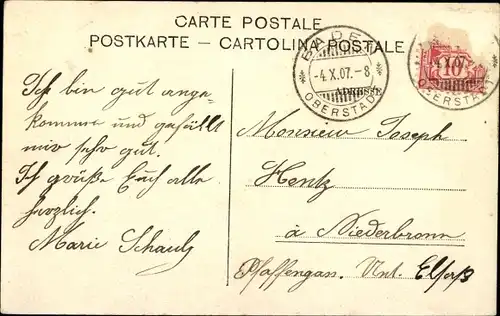 CARTE POSTALE
POSTKARTE — CARTOLINA POSTALE
BADEN
-4.X.07.-8
OBERSTADT
ADRESSE
4.X.07
OBERSTADT
10
Ich bin gut ange-
kommen und gefällt
mir sehr gut.
Ich grüße Euch alle
herzlich.
Marie Schaub
Monsieur Joseph
Hentz
à Niederbronn
Pfaffengas. Unt. Elsaß